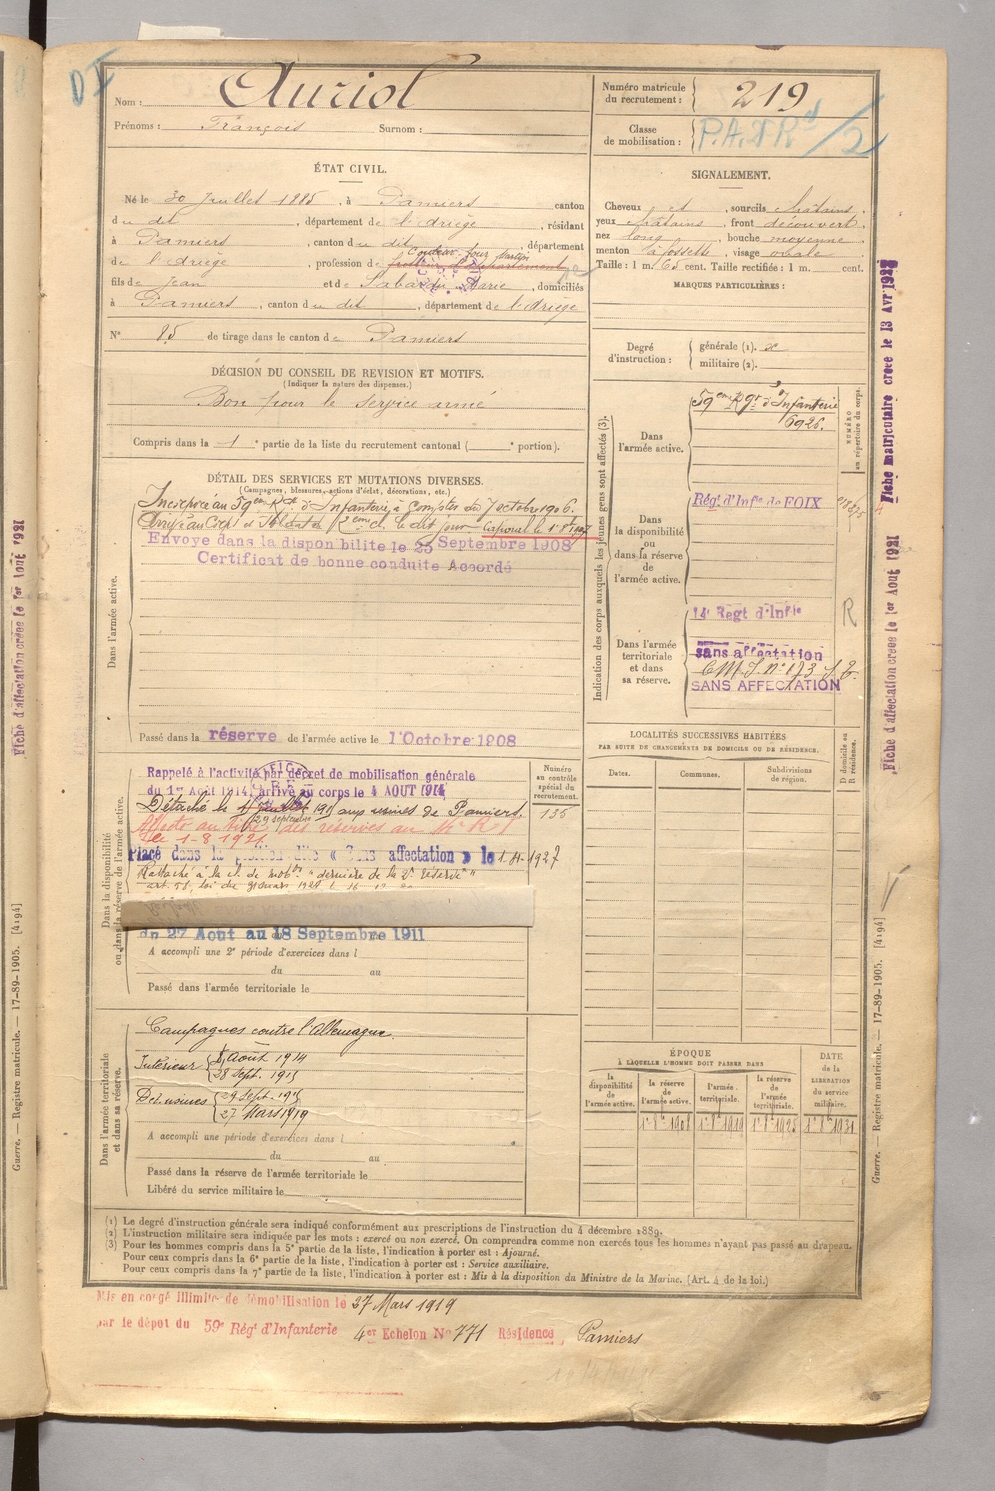 D I
Nom : Auriol
Prénoms : François Surnom :
Numéro matricule du recrutement : 219
Classe de mobilisation : P.A.X Rd /2
ÉTAT CIVIL.
Né le 30 Juillet 1885, à Pamiers canton
du dit, département de l'Ariège, résidant
à Pamiers, canton du dit, département
de l'Ariège, profession de
fils de Jean et de Marie, domiciliés
à Pamiers, canton du dit, département de l'Ariège
N° 85 de tirage dans le canton de Pamiers
DÉCISION DU CONSEIL DE REVISION ET MOTIFS.
(Indiquer la nature des dispenses.)
Bon pour le service armé
Compris dans la 1e partie de la liste du recrutement cantonal ( e portion).
SIGNALEMENT.
Cheveux et, sourcils châtains,
yeux châtains, front découvert,
nez long, bouche moyenne,
menton à fossette, visage ovale
Taille : 1 m. 65 cent. Taille rectifiée : 1 m. cent.
MARQUES PARTICULIÈRES :
Degré d'instruction : générale (1).
militaire (2).
DÉTAIL DES SERVICES ET MUTATIONS DIVERSES.
(Campagnes, blessures, actions d'éclat, décorations, etc.)
Dans l'armée active.
Incorporé au 59ème Rgt d'Infanterie, à compter du 7 octobre 1906.
Arrivé au Corps et Soldat de 2ème cl. le dit jour
Envoye dans la disponibilite le 25 Septembre 1908
Certificat de bonne conduite Accordé
Passé dans la réserve de l'armée active le 1 Octobre 1908
Indication des corps auxquels les jeunes gens sont affectés (3).
NUMÉRO au répertoire du corps.
Dans l'armée active.
59ème Rgt d'Infanterie
6926.
Dans la disponibilité ou dans la réserve de l'armée active.
Régt d'Infie de FOIX
Dans l'armée territoriale et dans sa réserve.
14e Regt d'Infie
R
sans affectation
SANS AFFECTATION
Dans la disponibilité ou dans la réserve de l'armée active.
Numéro au contrôle spécial du recrutement.
135
Rappelé à l'activité par décret de mobilisation générale
du 1er Août 1914, arrivé au corps le 4 AOUT 1914
Détaché le aux usines de Pamiers.
29 septembre
Affecté au titre des réserves au
le 1-8-1921
Placé dans la position dite « Sans affectation » le 1-11-1927
Rattaché à la cl. de mobon "dernière de la 2e réserve"
du 27 Aout au 18 Septembre 1911
A accompli une 2e période d'exercices dans l
du au
Passé dans l'armée territoriale le
Dans l'armée territoriale et dans sa réserve.
Campagnes contre l'Allemagne
Intérieur
Août 1914
28 Sept. 1915
29 Sept. 1915
27 Mars 1919
A accompli une période d'exercices dans l
du au
Passé dans la réserve de l'armée territoriale le
Libéré du service militaire le
LOCALITÉS SUCCESSIVES HABITÉES
PAR SUITE DE CHANGEMENTS DE DOMICILE OU DE RÉSIDENCE.
D domicile ou R résidence.
Dates. Communes. Subdivisions de région.
ÉPOQUE
À LAQUELLE L'HOMME DOIT PASSER DANS
DATE de la LIBÉRATION du service militaire.
la disponibilité de l'armée active.
la réserve de l'armée active.
l'armée territoriale.
la réserve de l'armée territoriale.
(1) Le degré d'instruction générale sera indiqué conformément aux prescriptions de l'instruction du 4 décembre 1889.
(2) L'instruction militaire sera indiquée par les mots : exercé ou non exercé. On comprendra comme non exercés tous les hommes n'ayant pas passé au drapeau.
(3) Pour les hommes compris dans la 5e partie de la liste, l'indication à porter est : Ajourné.
Pour ceux compris dans la 6e partie de la liste, l'indication à porter est : Service auxiliaire.
Pour ceux compris dans la 7e partie de la liste, l'indication à porter est : Mis à la disposition du Ministre de la Marine. (Art. 4 de la loi.)
Mis en congé illimité de démobilisation le 27 Mars 1919
par le dépot du 59e Régt d'Infanterie 4er Echelon No 771 Résidence Pamiers
Fiche matriculaire créée le 13 Avr
Fiche d'affectation créée le 1er Aout 1921
Guerre. — Registre matricule. — 17-89-1905. [4194]
Fiche d'affectation créée le 1er Aout 1921
Guerre. — Registre matricule. — 17-89-1905. [4194]